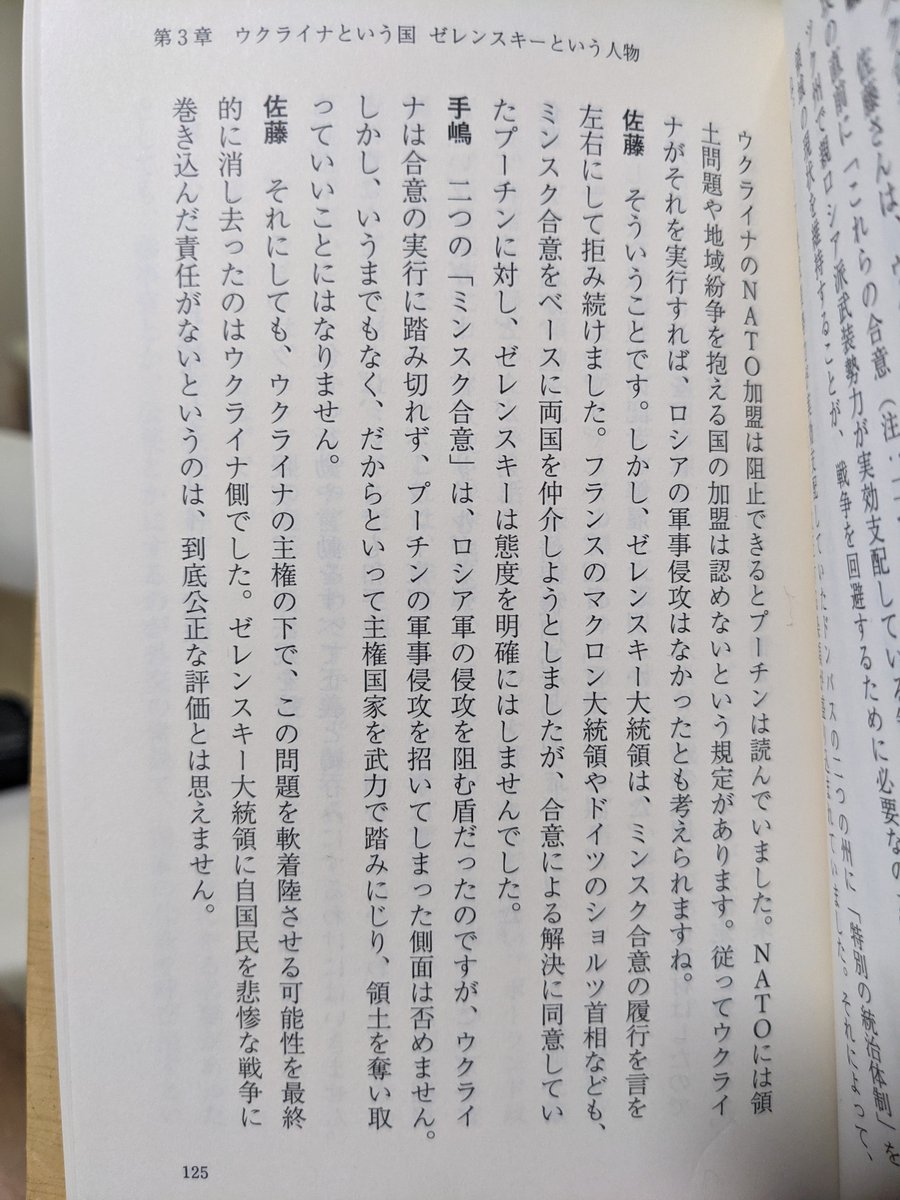 佐藤さんは、ウ
の直前に「これらの合意（注:
ツク州で親ロシア派武装勢力が実効支配している
現状を維持することが、戦争を回避するために必要なの
ドンバスの二つの州に「特別の統治体制」を
まれていました。それによって、
第3章　ウクライナという国　ゼレンスキーという人物
ウクライナのNATO加盟は阻止できるとプーチンは読んでいました。NATOには領
土問題や地域紛争を抱える国の加盟は認めないという規定があります。従ってウクライ
ナがそれを実行すれば、ロシアの軍事侵攻はなかったとも考えられますね。
佐藤　そういうことです。しかし、ゼレンスキー大統領は、ミンスク合意の履行を言を
左右にして拒み続けました。フランスのマクロン大統領やドイツのショルツ首相なども、
ミンスク合意をベースに両国を仲介しようとしましたが、合意による解決に同意してい
たプーチンに対し、ゼレンスキーは態度を明確にはしませんでした。
手嶋　二つの「ミンスク合意」は、ロシア軍の侵攻を阻む盾だったのですが、ウクライ
ナは合意の実行に踏み切れず、プーチンの軍事侵攻を招いてしまった側面は否めません。
しかし、いうまでもなく、だからといって主権国家を武力で踏みにじり、領土を奪い取
っていいことにはなりません。
佐藤　それにしても、ウクライナの主権の下で、この問題を軟着陸させる可能性を最終
的に消し去ったのはウクライナ側でした。ゼレンスキー大統領に自国民を悲惨な戦争に
巻き込んだ責任がないというのは、到底公正な評価とは思えません。
125